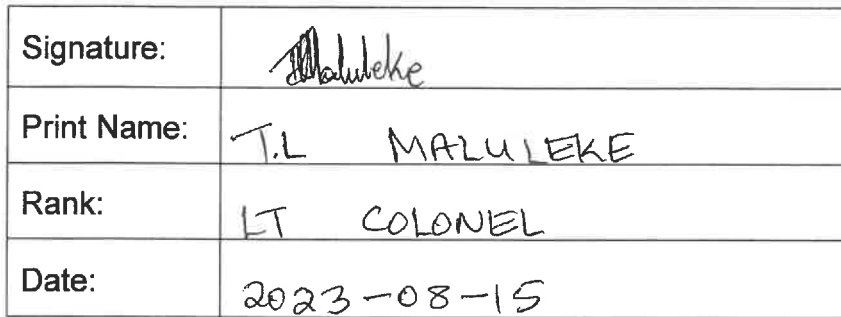 Signature: Maluleke
Print Name: T.L MALULEKE
Rank: LT COLONEL
Date: 2023-08-15